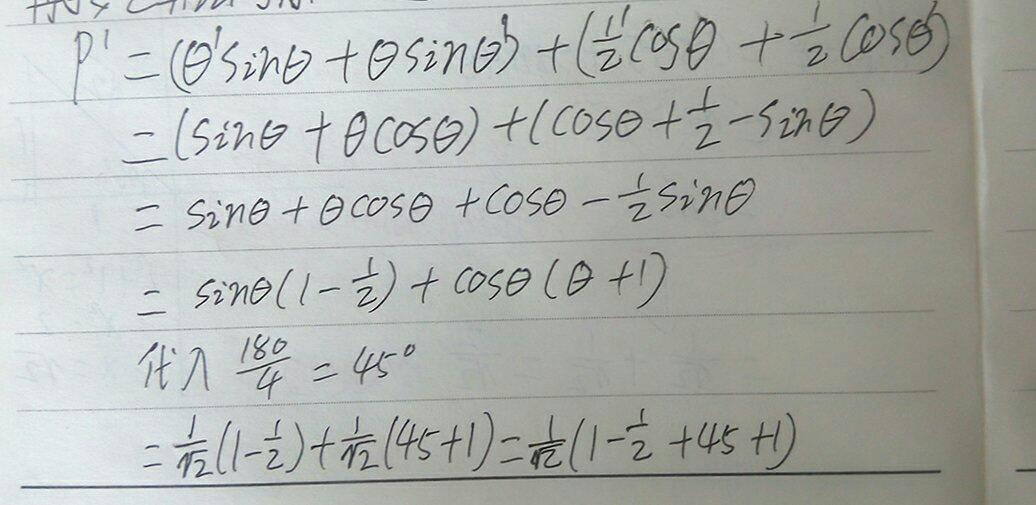 P' = (θ'sinθ + θsinθ') + (½'cosθ + ½cosθ')
= (sinθ + θcosθ) + (cosθ + ½ - sinθ)
= sinθ + θcosθ + cosθ - ½sinθ
= sinθ(1 - ½) + cosθ(θ + 1)
代入 180/4 = 45°
= 1/√2(1 - ½) + 1/√2(45 + 1) = 1/√2(1 - ½ + 45 + 1)